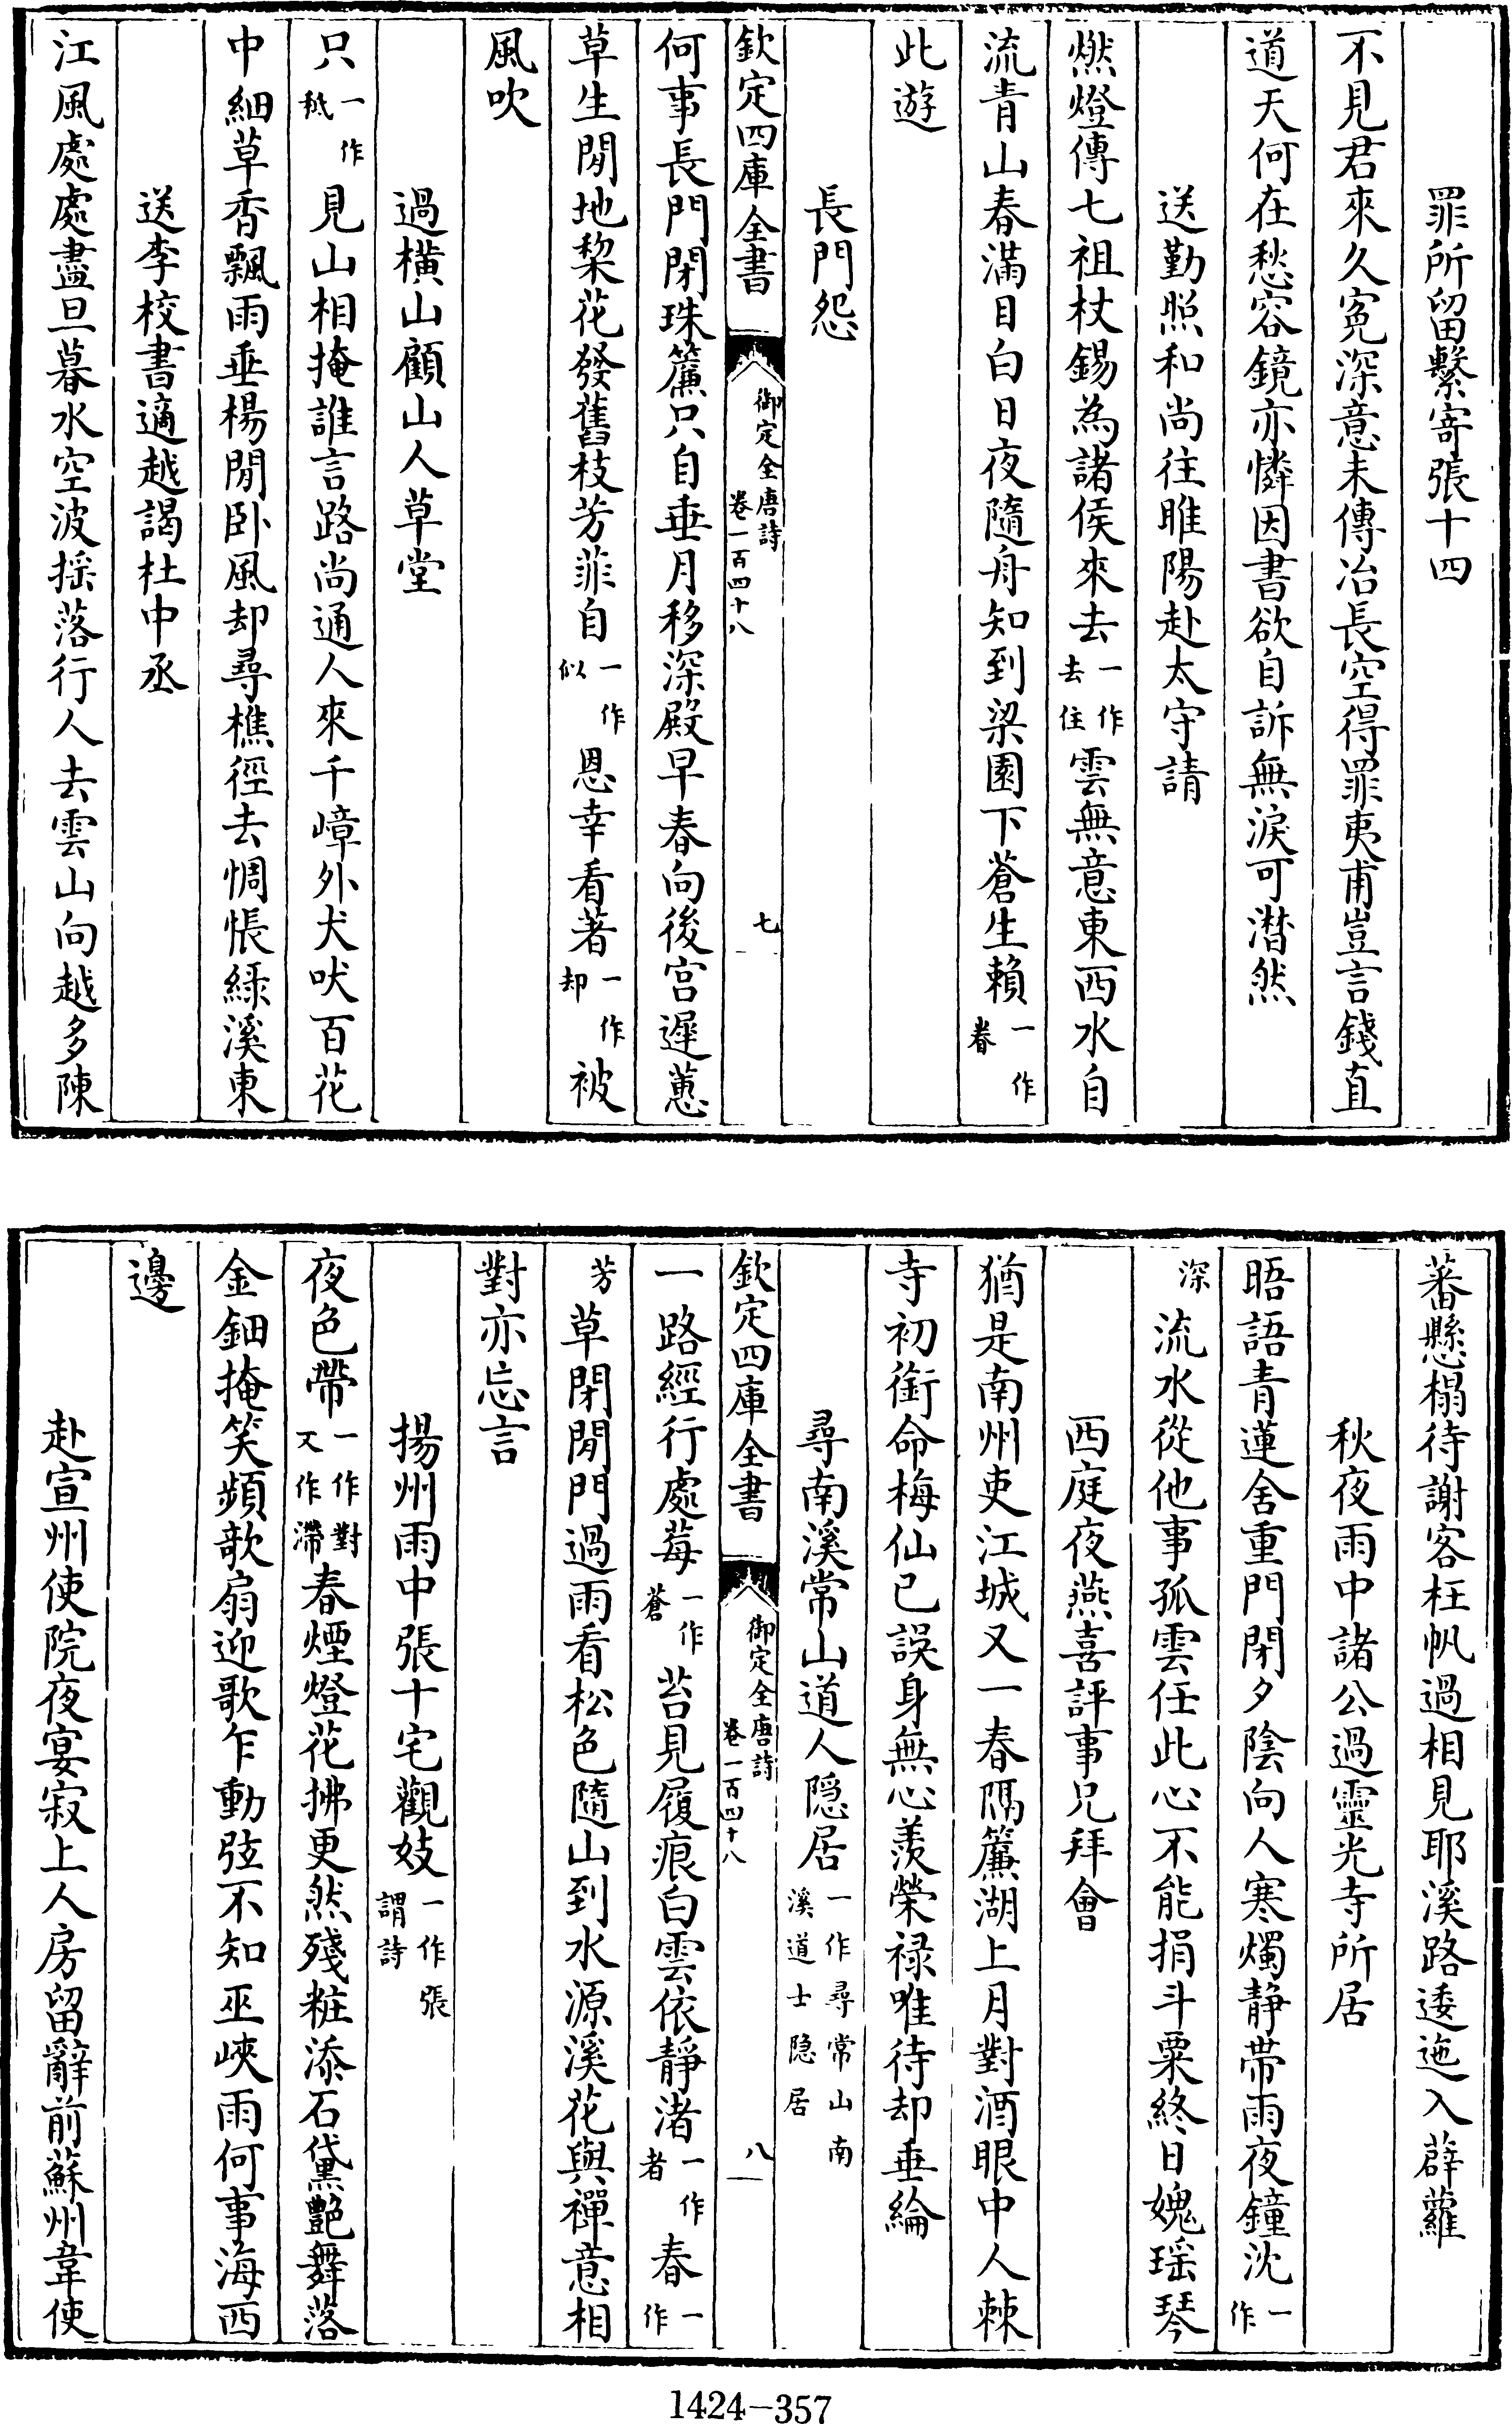 罪所留繫寄張十四
不見君來久寃深意未傳冶長空得罪夷甫豈言錢直
道天何在愁容鏡亦憐因書欲自訴無淚可潸然
送勤照和尚往睢陽赴太守請
燃燈傳七祖杖錫為諸侯來去一作去住雲無意東西水自
流青山春滿目白日夜隨舟知到梁園下蒼生賴一作眷
此遊
長門怨
欽定四庫全書 御定全唐詩卷一百四十八 七
何事長門閉珠簾只自垂月移深殿早春向後宫遲蕙
草生閒地棃花發舊枝芳菲自一作似恩幸看著一作却被
風吹
過橫山顧山人草堂
只一作秪見山相掩誰言路尚通人來千嶂外犬吠百花
中細草香飄雨垂楊閒卧風却尋樵徑去惆悵綠溪東
送李校書適越謁杜中丞
江風處處盡旦暮水空波摇落行人去雲山向越多陳
蕃懸榻待謝客枉帆過相見耶溪路逶迤入薜蘿
秋夜雨中諸公過靈光寺所居
晤語青蓮舍重門閉夕陰向人寒燭静帶雨夜鐘沈一作
深流水從他事孤雲任此心不能捐斗粟終日媿瑶琴
西庭夜燕喜評事兄拜會
猶是南州吏江城又一春隔簾湖上月對酒眼中人棘
寺初銜命梅仙已誤身無心羡榮禄唯待却垂綸
尋南溪常山道人隱居一作尋常山南溪道士隱居
欽定四庫全書 御定全唐詩卷一百四十八 八
一路經行處莓一作蒼苔見履痕白雲依靜渚一作者春一作
芳草閉閒門過雨看松色隨山到水源溪花與禪意相
對亦忘言
揚州雨中張十宅觀妓一作張謂詩
夜色帶一作對又作滯春煙燈花拂更然殘粧添石黛艶舞落
金鈿掩笑頻欹扇迎歌乍動弦不知巫峽雨何事海西
邊
赴宣州使院夜宴寂上人房留辭前蘇州韋使
1424-357